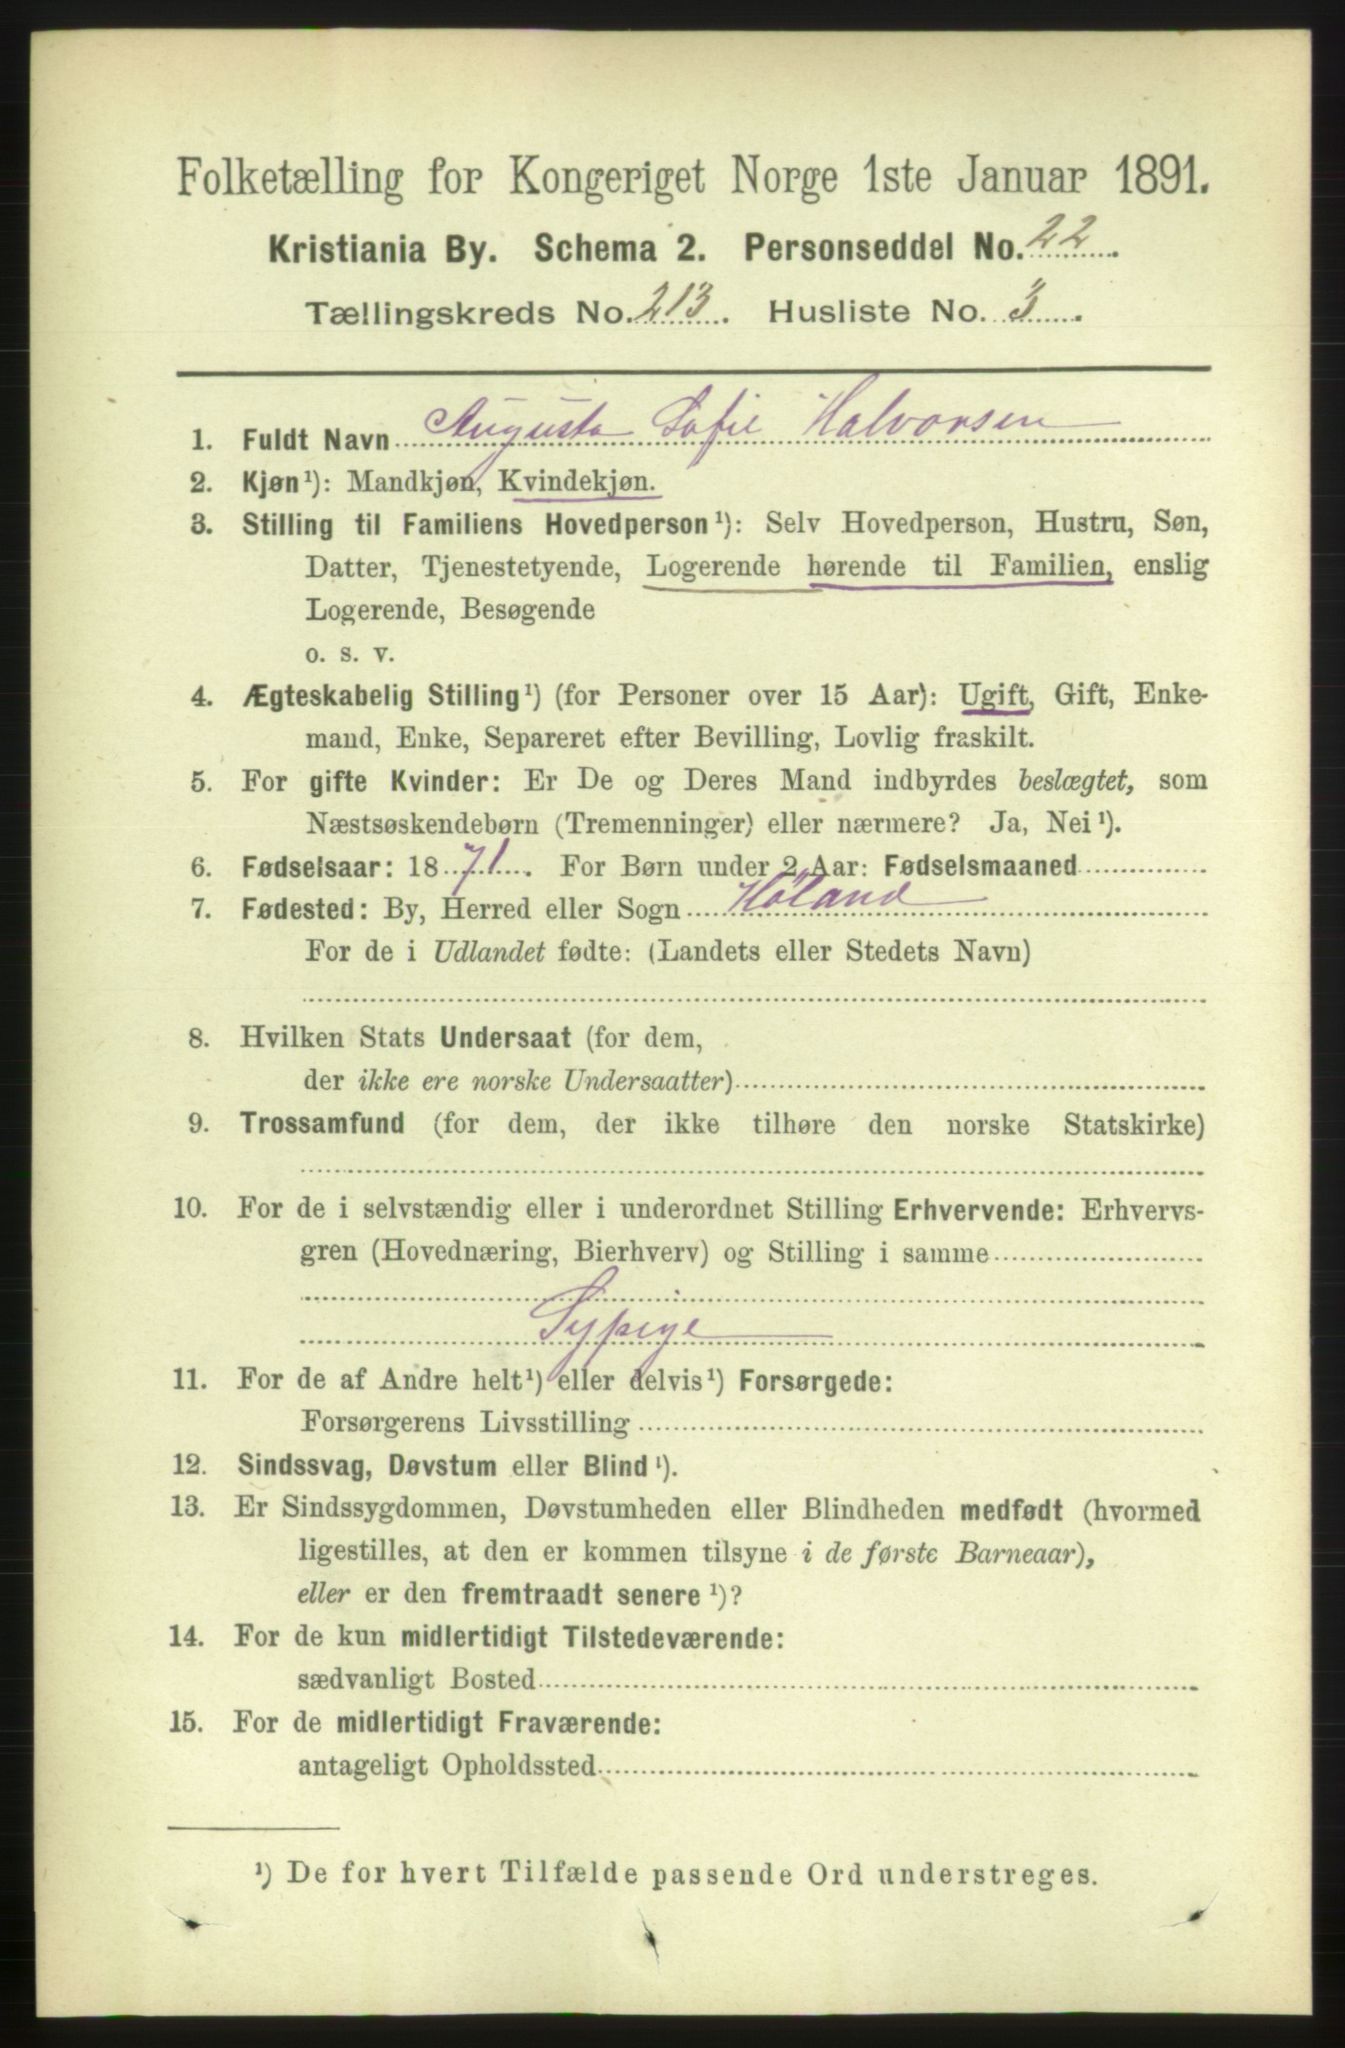 Folketælling for Kongeriget Norge 1ste Januar 1891.
Kristiania By. Schema 2. Personseddel No. 22.
Tællingskreds No. 213. Husliste No. 3.
1. Fuldt Navn Augusta Sofie Halvorsen
2. Kjøn¹): Mandkjøn, Kvindekjøn.
3. Stilling til Familiens Hovedperson¹): Selv Hovedperson, Hustru, Søn,
Datter, Tjenestetyende, Logerende hørende til Familien, enslig
Logerende, Besøgende
o. s. v.
4. Ægteskabelig Stilling¹) (for Personer over 15 Aar): Ugift, Gift, Enke-
mand, Enke, Separeret efter Bevilling, Lovlig fraskilt.
5. For gifte Kvinder: Er De og Deres Mand indbyrdes beslægtet, som
Næstsøskendebørn (Tremenninger) eller nærmere? Ja, Nei¹).
6. Fødselsaar: 1871. For Børn under 2 Aar: Fødselsmaaned
7. Fødested: By, Herred eller Sogn Høland
For de i Udlandet fødte: (Landets eller Stedets Navn)
8. Hvilken Stats Undersaat (for dem,
der ikke ere norske Undersaatter)
9. Trossamfund (for dem, der ikke tilhøre den norske Statskirke)
10. For de i selvstændig eller i underordnet Stilling Erhvervende: Erhvervs-
gren (Hovednæring, Bierhverv) og Stilling i samme
Sypige
11. For de af Andre helt¹) eller delvis¹) Forsørgede:
Forsørgerens Livsstilling
12. Sindssvag, Døvstum eller Blind¹).
13. Er Sindssygdommen, Døvstumheden eller Blindheden medfødt (hvormed
ligestilles, at den er kommen tilsyne i de første Barneaar),
eller er den fremtraadt senere¹)?
14. For de kun midlertidigt Tilstedeværende:
sædvanligt Bosted
15. For de midlertidigt Fraværende:
antageligt Opholdssted
¹) De for hvert Tilfælde passende Ord understreges.